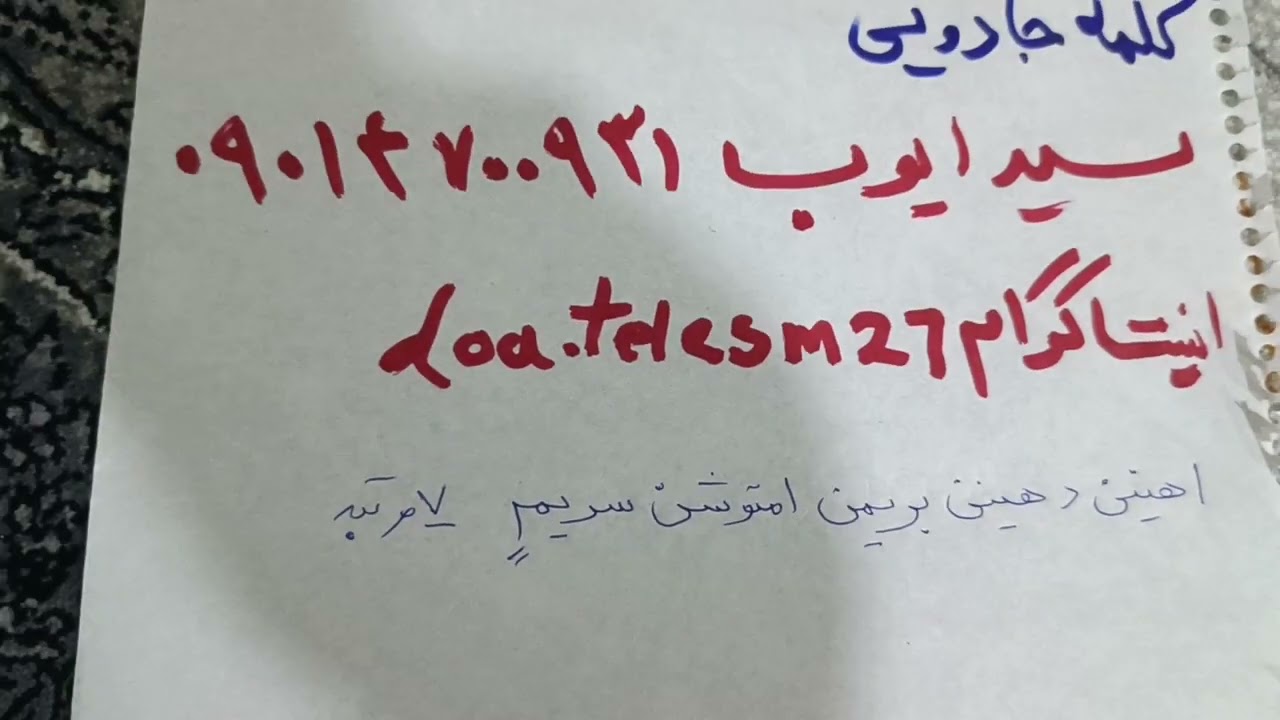 کلمه جادویی
سید ایوب ۰۹۰۱۴۷۰۰۹۳۱
اینستاگرام doa.telesm27
اهینن دهینن بریمن امتوشن سریمٍ ۷ مرتبه